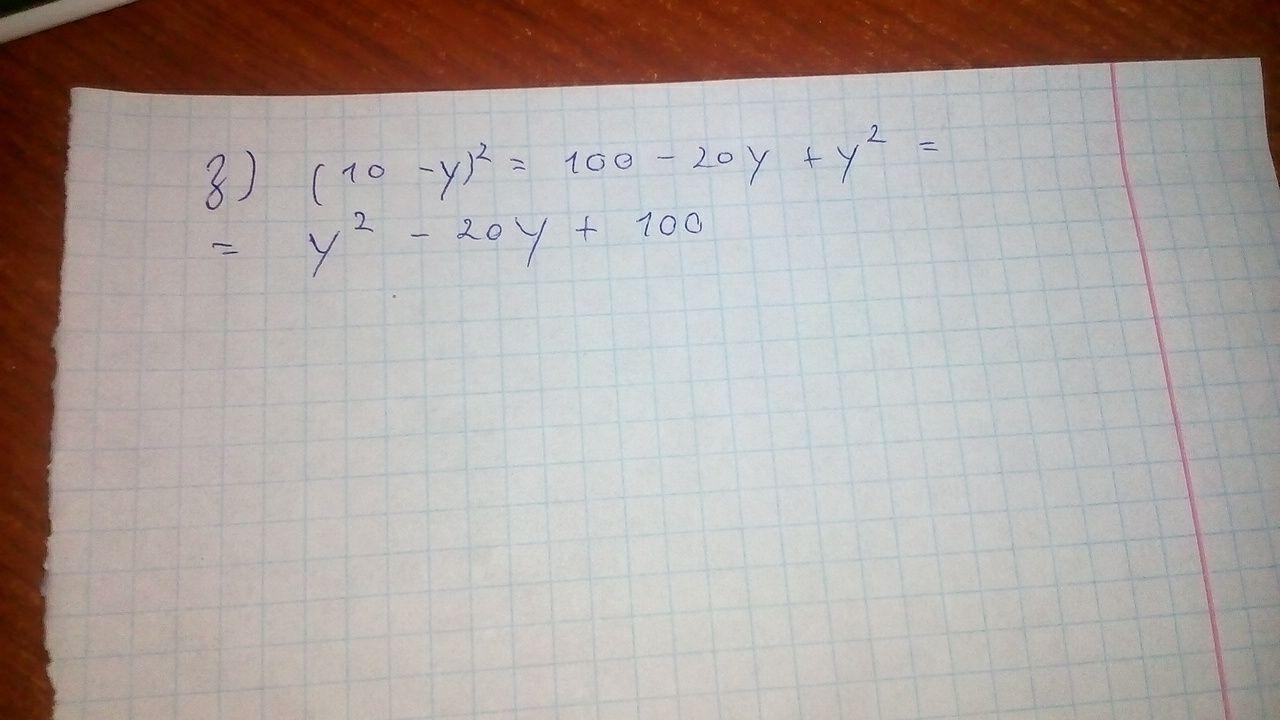 з) (10 - y)² = 100 - 20y + y² =
= y² - 20y + 100